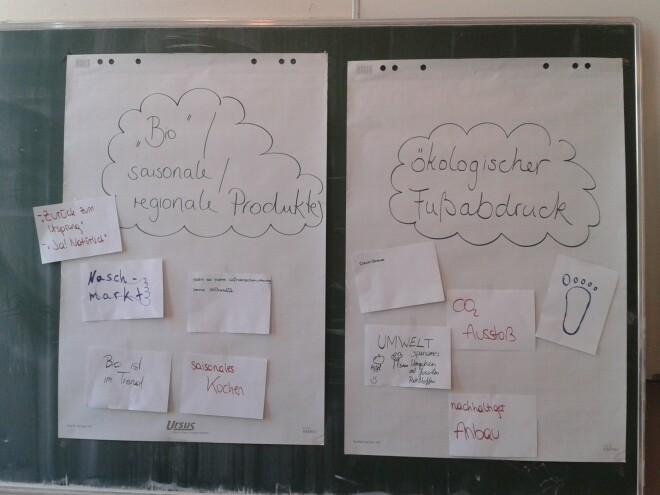 „Bio" /
saisonale/
regionale Produkte
„Zurück zum
Ursprung"
„Ja! Natürlich"
Nasch-
markt
Bio ist
im Trend
saisonales
Kochen
Ursus
ökologischer
Fußabdruck
CO₂
Ausstoß
UMWELT
sparsames
Umgehen
mit fossilen
Rohstoffen
nachhaltiger
Anbau